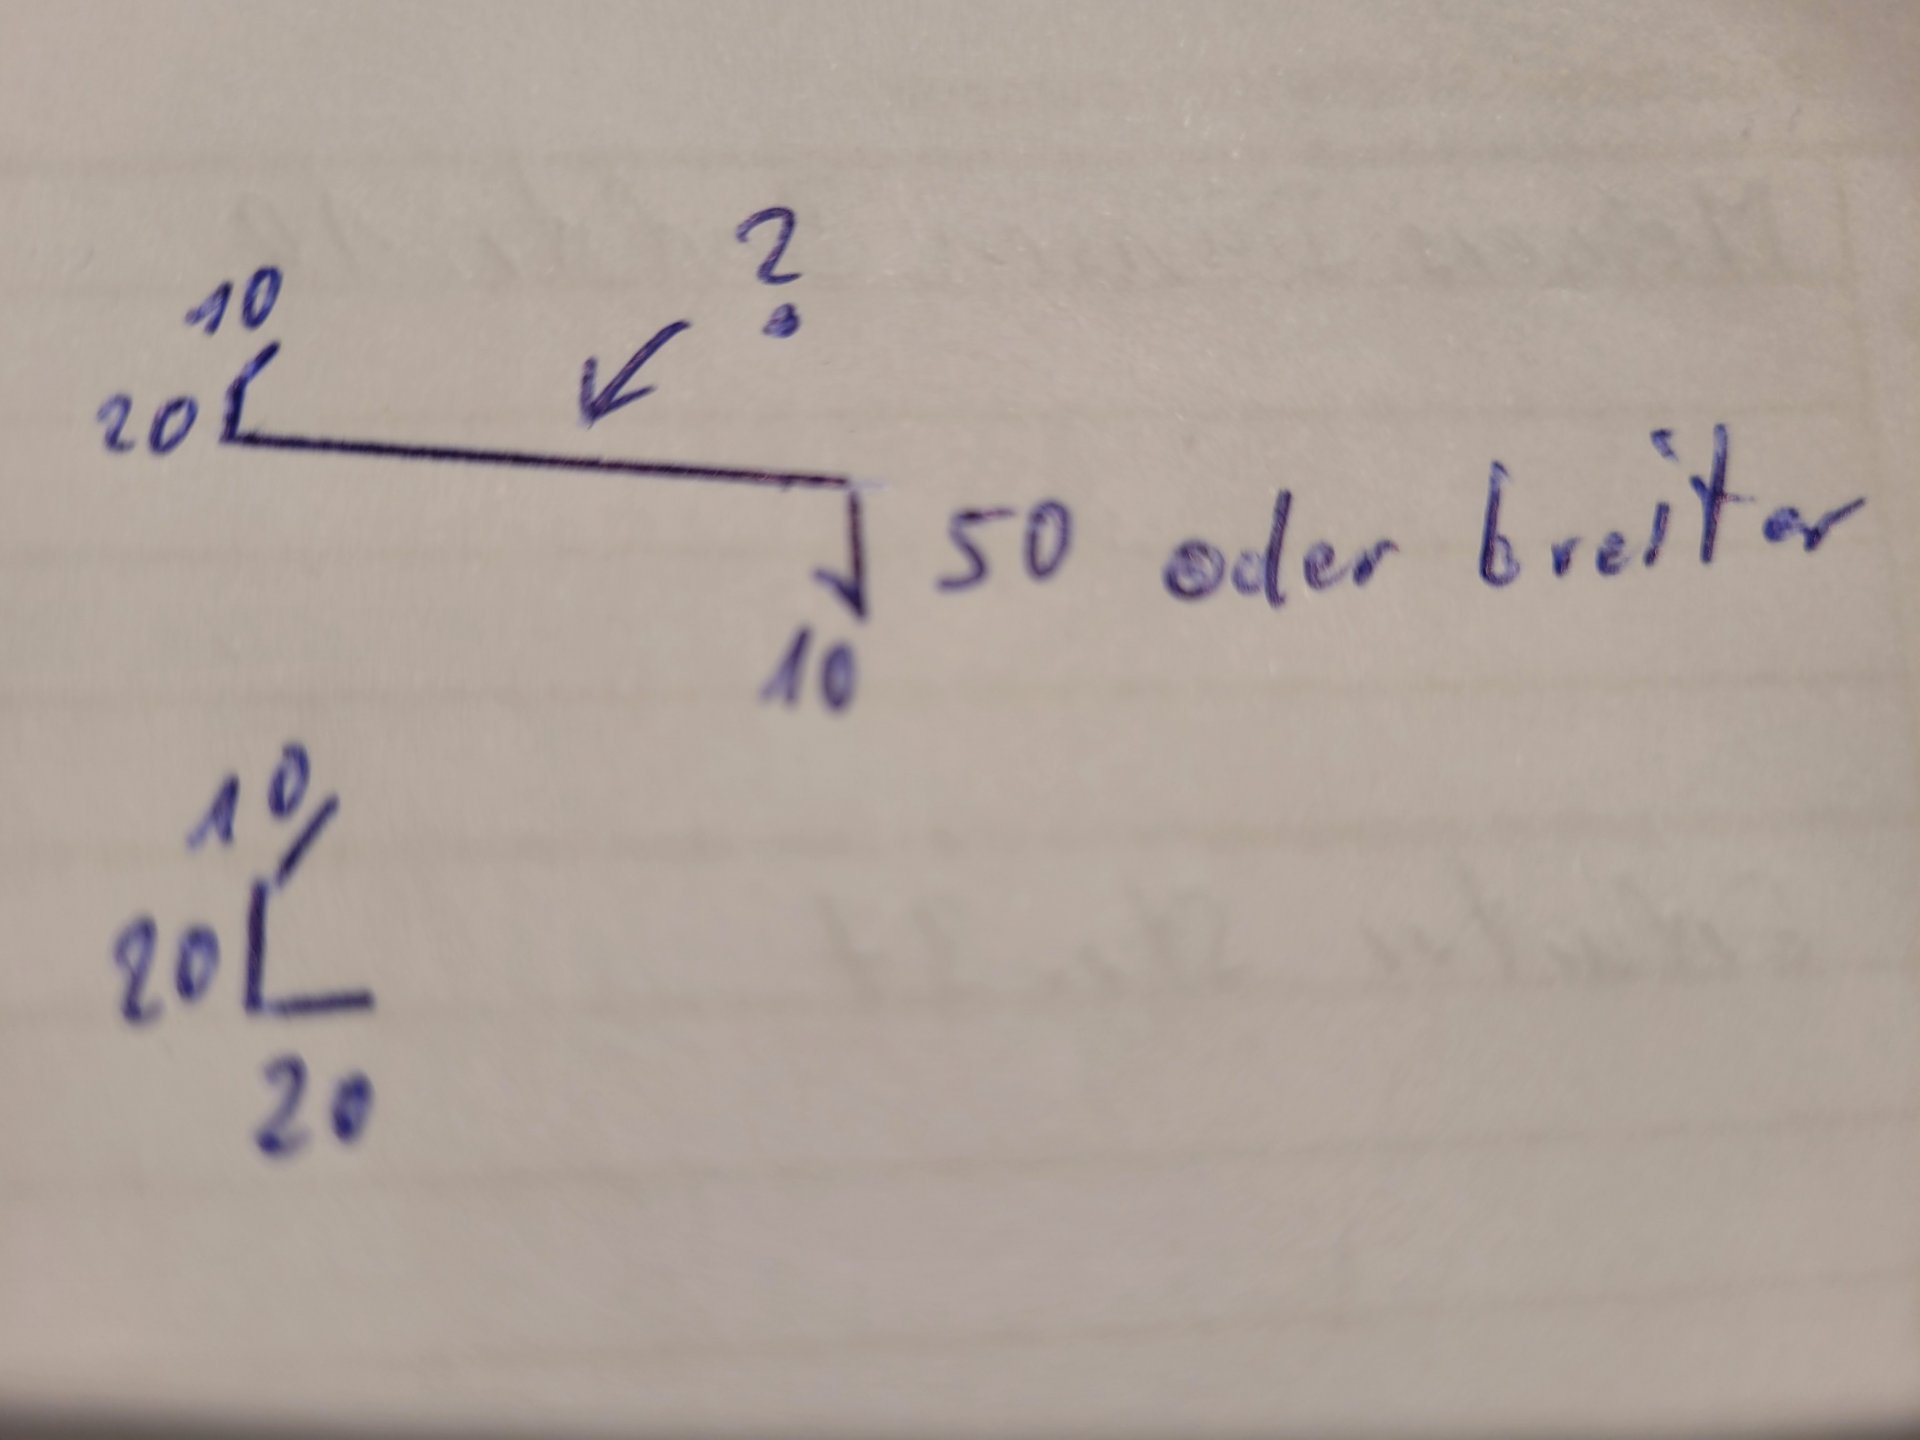 ?
10
20
50 oder breiter
10
10
20
20